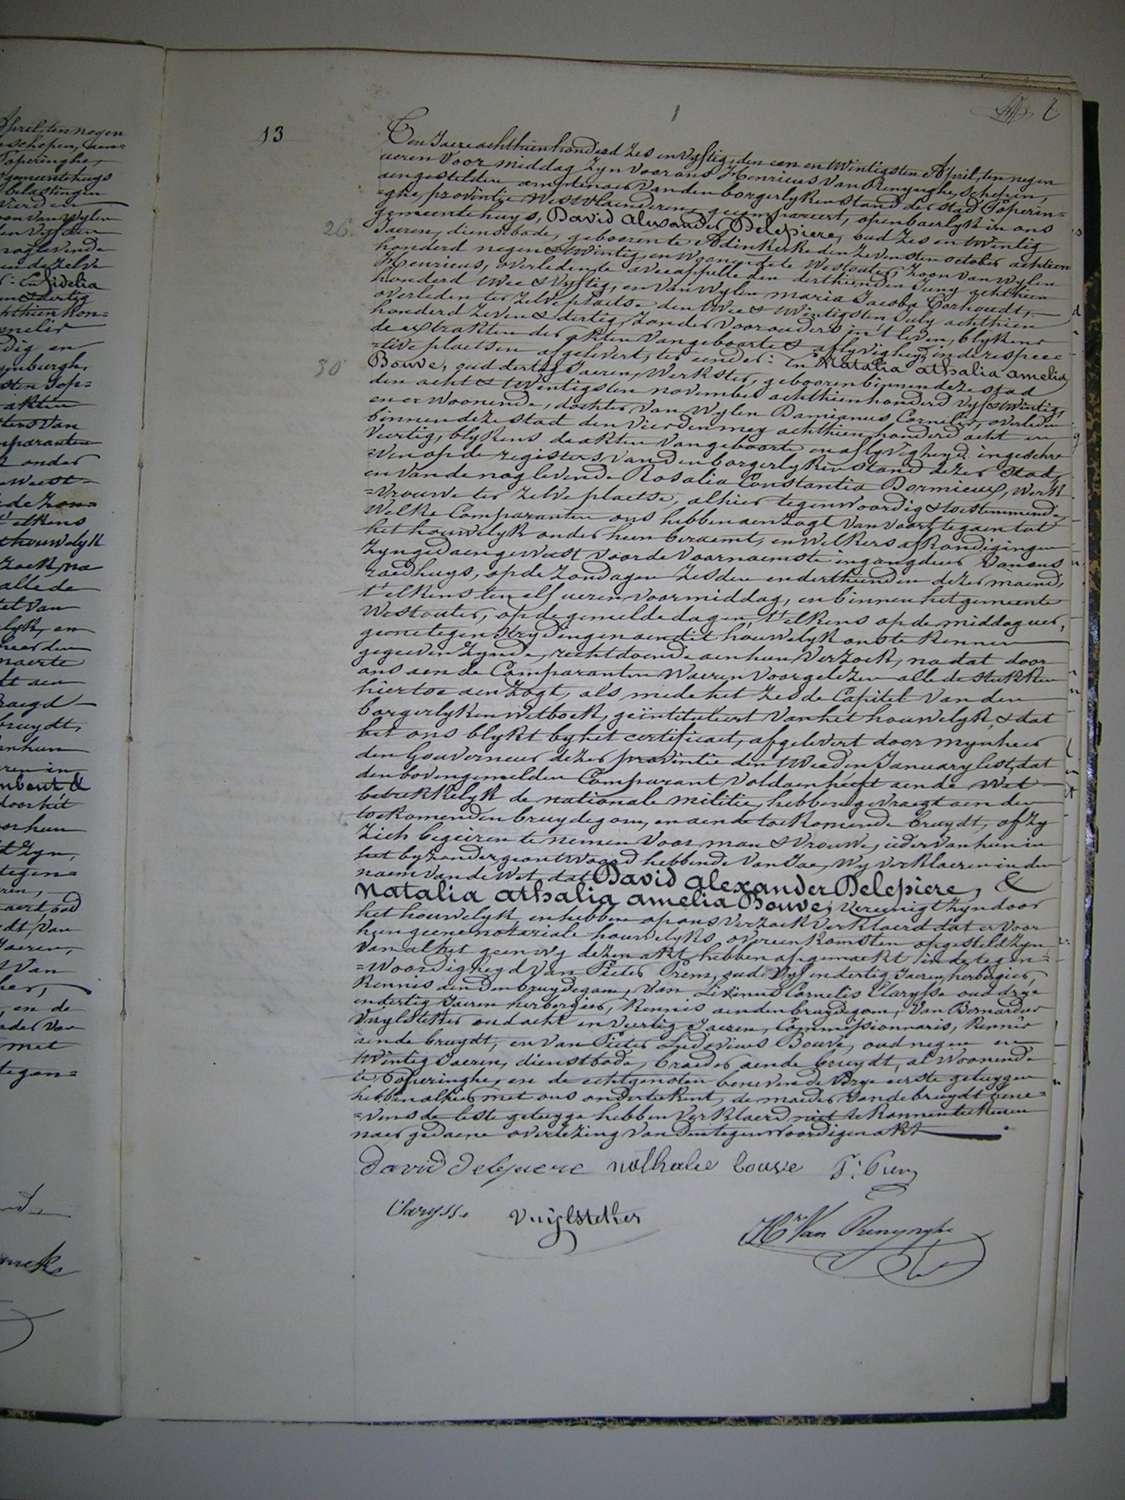 13
Ten Jaere achthien honderd zes en vyftig, den een en twintigsten April, ten negen
ueren voormiddag zyn voor ons Henricus Van Renynghe, schepen,
aengestelden amptenaer van den borgerlyken stand der stad Poperin=
=ghe, provintie West Vlaenderen, gecompareert, openbaerlyk in ons
gemeentehuys, David Alexander Delepiere, oud zes en twintig
26. Jaeren, dienstbode, geboren te Adinkerke den zevensten october achtien
honderd negen & twintig, en woonende te Westouter, zoon van wylen
Henricus, overleden te Avecappelle den derthienden Juny achthien
honderd twee & vyftig, en van wylen Maria Jacoba Corhoudt,
overleden ter zelve plaetse den twee & twintigsten July achthien
honderd zeven & dertig, zonder voorouders in 't leven, blykens
de extrakten der akten van geboorte & aflyvigheyd in de respec=
=tive plaetsen afgelevert, ter eender: En Natalia Athalia Amelia
30. Bouve, oud dertig Jaeren, Werkster, geboren binnen deze stad
den acht & twintigsten november achthien honderd vyf & twintig,
en er woonende, dochter van wylen Damianus Cornelis, overleden
binnen deze stad den vierden mey achthien honderd acht en
veertig, blykens de akten van geboorte en aflyvigheyd ingeschre=
=ven op de registers van den borgerlyken stand dezer stad,
en van de nog levende Rosalia Constantia Dermieux, Werk=
=vrouwe ter zelve plaetse, alhier tegenwoordig & toestemmende
Welke Comparanten ons hebben aenzogt van voort te gaen tot
het houwelyk onder hun beraemt, en welkers afkondigingen
zyn gedaen geweest voor de voornaemste ingangdeur van ons
raedhuys, op de zondagen zesden en derthienden dezer maend,
t'elkens ten elf ueren voormiddag, en binnen het gemeente
Westouter, op de gemelde dagen, t'elkens op de middaguer,
geene tegenstrydingen aen dit houwelyk ons te kennen
gegeven zynde, rechtdoende aen hun verzoek, na dat door
ons aen de Comparanten waeren voorgelezen alle de stukken
hiertoe aenzogt, als mede het zesde Capitel van den
borgerlyken Wetboek, geïntituleert van het houwelyk, & dat
het ons blykt by het certificaet, afgelevert door mynheer
den Gouverneur dezer provintie den tweeden January lest, dat
den bovengemelden Comparant voldaen heeft aen de Wet
betrekkelyk de nationale militie, hebben gevraegt aen den
toekomenden bruydegom, en aen de toekomende bruydt, of zy
zich begeiren te nemen voor man & vrouwe, ieder van hun in
het byzonder geantwoord hebbende van Jae, Wy verklaeren in den
naem van de Wet, dat David Alexander Delepiere, &
Natalia Athalia Amelia Bouve, vereenigt zyn door
het houwelyk, en hebben op ons verzoek verklaerd dat er voor
hun geene notariale houwelyks overeenkomsten opgesteld zyn
Van al het geen wy dezen akt hebben opgemaekt in de tegen=
=woordigheyd van Pieter Prem, oud vyf en dertig Jaeren, herbergier,
kennis aen den bruydegom, van Livinus Cornelis Clarysse oud drye
en dertig Jaeren herbergier, kennis aen den bruydegom, van Bernardus
Vuylsteker oud acht en veertig Jaeren, Commissionnaris, kennis
aen de bruydt, en van Pieter Ludovicus Bouve, oud negen en
twintig Jaeren, dienstbode, broeder aen de bruydt, al woonende
te Poperinghe, en de echtgenoten benevens de drye eerste getuygen
hebben alhier met ons onderteekent, de moeder van de bruydt bene=
=vens de leste getuyge hebben verklaerd niet te kunnen teekenen
naer gedaene overlezing van den tegenwoordigen akt.
David Delepiere nathalie bouve P. Prem
Clarysse Vuylsteker
Hri Van Renynghe